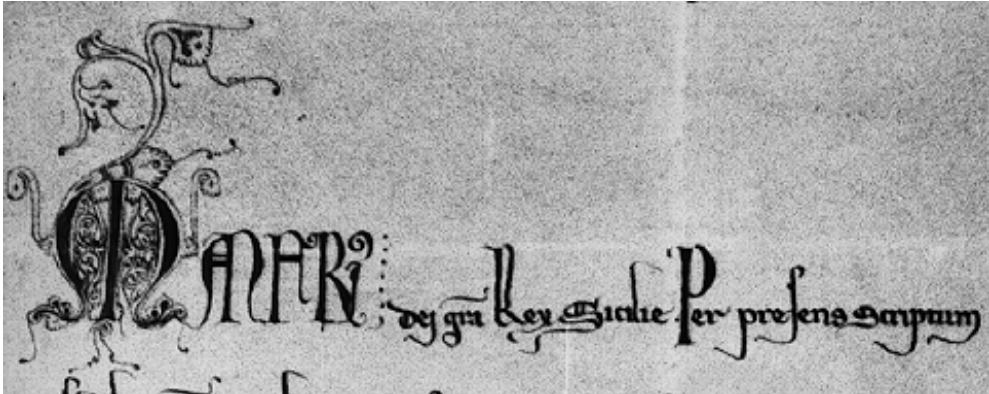 MANFRI dej gra Rex Sicilie Per presens Scriptum